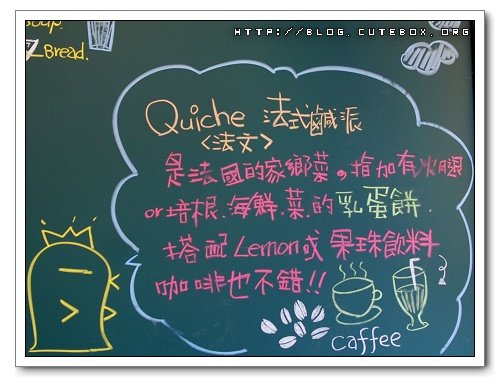 Soup.
Bread.
HTTP://BLOG.CUTEBOX.ORG
Quiche 法式鹹派
<法文>
是法國的家鄉菜。指加有火腿
or培根、海鮮、菜的乳蛋餅.
搭配Lemon或果珠飲料
咖啡也不錯!!
caffee